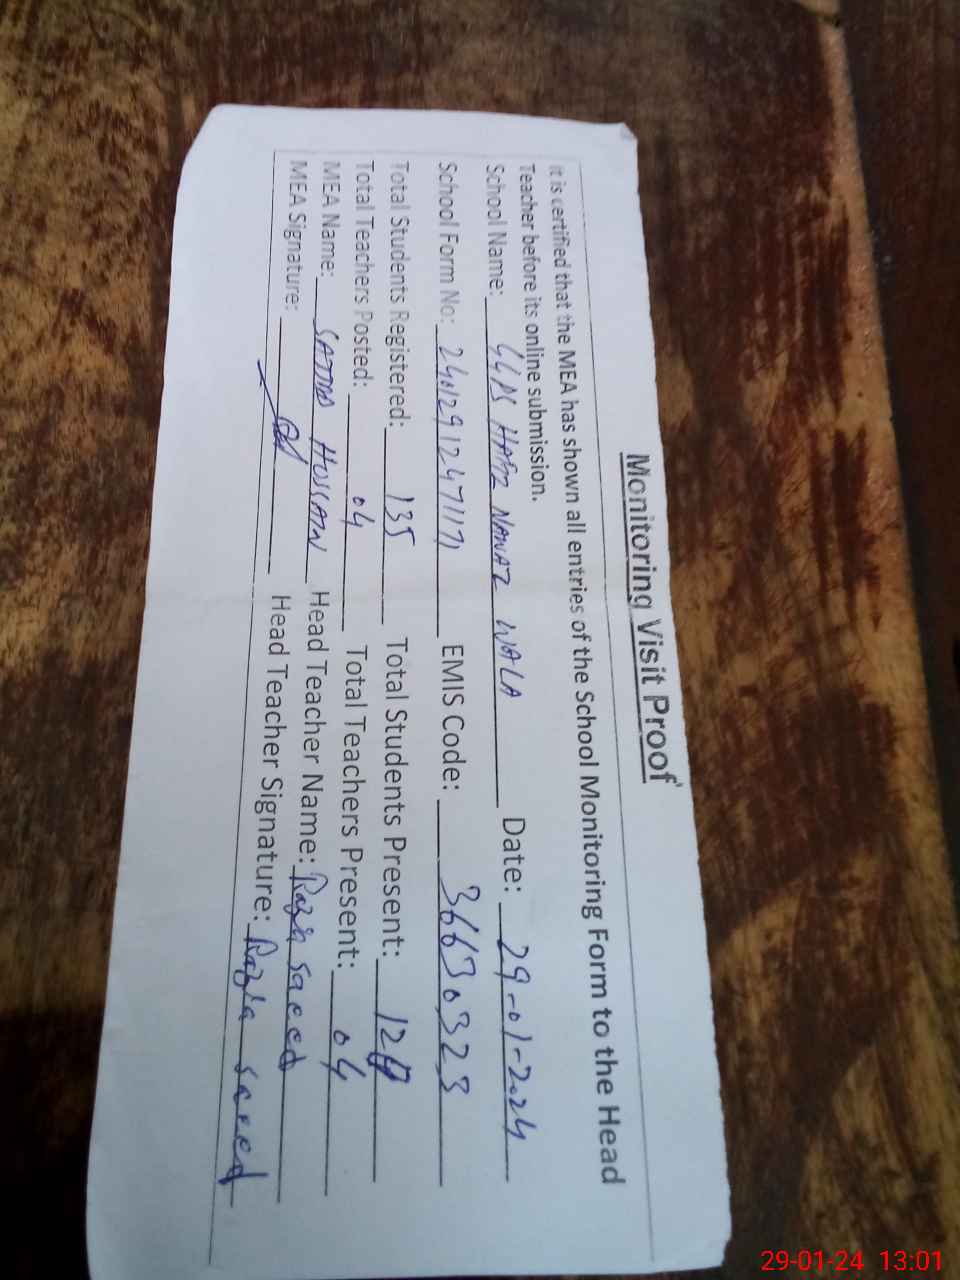 Monitoring Visit Proof
It is certified that the MEA has shown all entries of the School Monitoring Form to the Head
Teacher before its online submission.
School Name: GGPS HAFIZ NAWAZ WALA Date: 29-01-2024
School Form No: EMIS Code: 36630323
Total Students Registered: 135 Total Students Present:
Total Teachers Posted: 04 Total Teachers Present: 04
MEA Name: SAJJAD HUSSAIN Head Teacher Name: Razia saeed
MEA Signature: Head Teacher Signature: Razia saeed
29-01-24 13:01